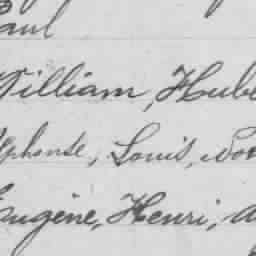 Paul
William, Hube
Alphonse, Louis,
Eugène, Henri,